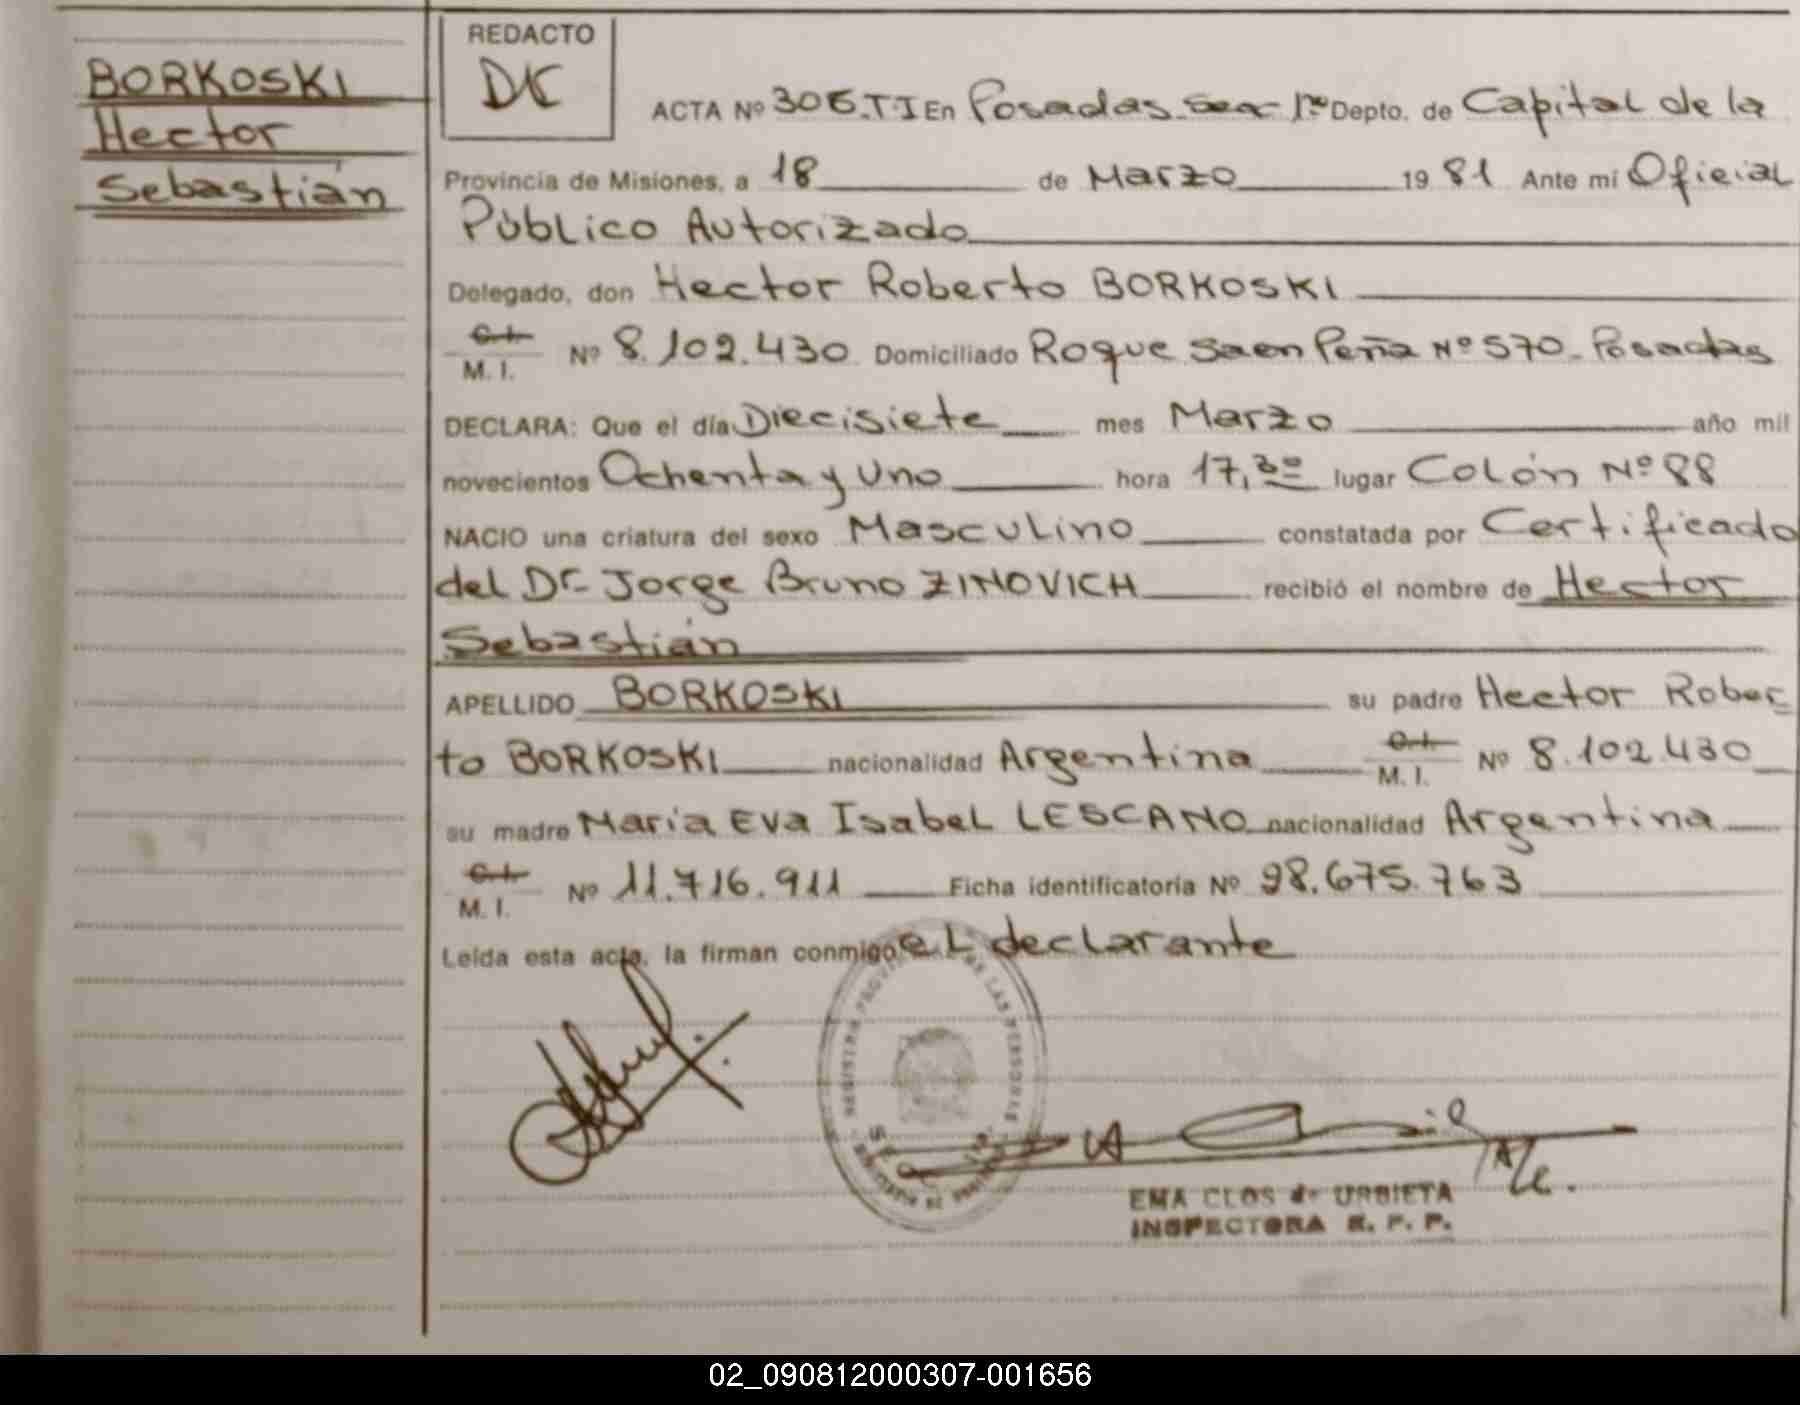 BORKOSKI
Hector
Sebastián
REDACTO
ACTA Nº 306.TI En Posadas Sec 1ra Depto. de Capital de la
Provincia de Misiones, a 18 de Marzo 1981 Ante mi Oficial
Público Autorizado
Delegado, don Hector Roberto BORKOSKI
C.I.
M. I. Nº 8.102.430 Domiciliado Roque Saen Peña Nº 570 - Posadas
DECLARA: Que el día Diecisiete mes Marzo año mil
novecientos Ochenta y Uno hora 17,30 lugar Colón Nº 88
NACIO una criatura del sexo Masculino constatada por Certificado
del Dr. Jorge Bruno ZINOVICH recibió el nombre de Hector
Sebastián
APELLIDO BORKOSKI su padre Hector Rober=
to BORKOSKI nacionalidad Argentina C.I. M. I. Nº 8.102.430
su madre Maria Eva Isabel LESCANO nacionalidad Argentina
C.I.
M. I. Nº 11.716.911 Ficha identificatoria Nº 98.675.763
Leída esta acta, la firman conmigo el declarante
EMA CLOS de URBIETA
INSPECTORA R. P. P.
02_090812000307-001656